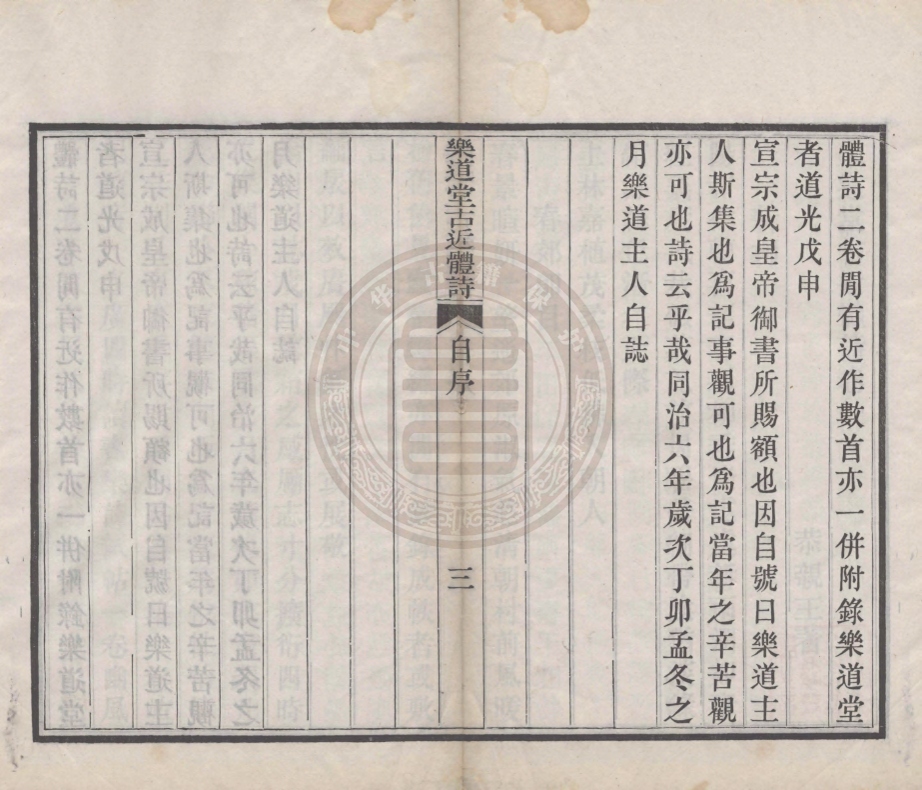 體詩二卷閒有近作數首亦一併附錄樂道堂
者道光戊申
宣宗成皇帝御書所賜額也因自號曰樂道主
人斯集也為記事觀可也為記當年之辛苦觀
亦可也詩云乎哉同治六年歲次丁卯孟冬之
月樂道主人自誌
樂道堂古近體詩 自序 三